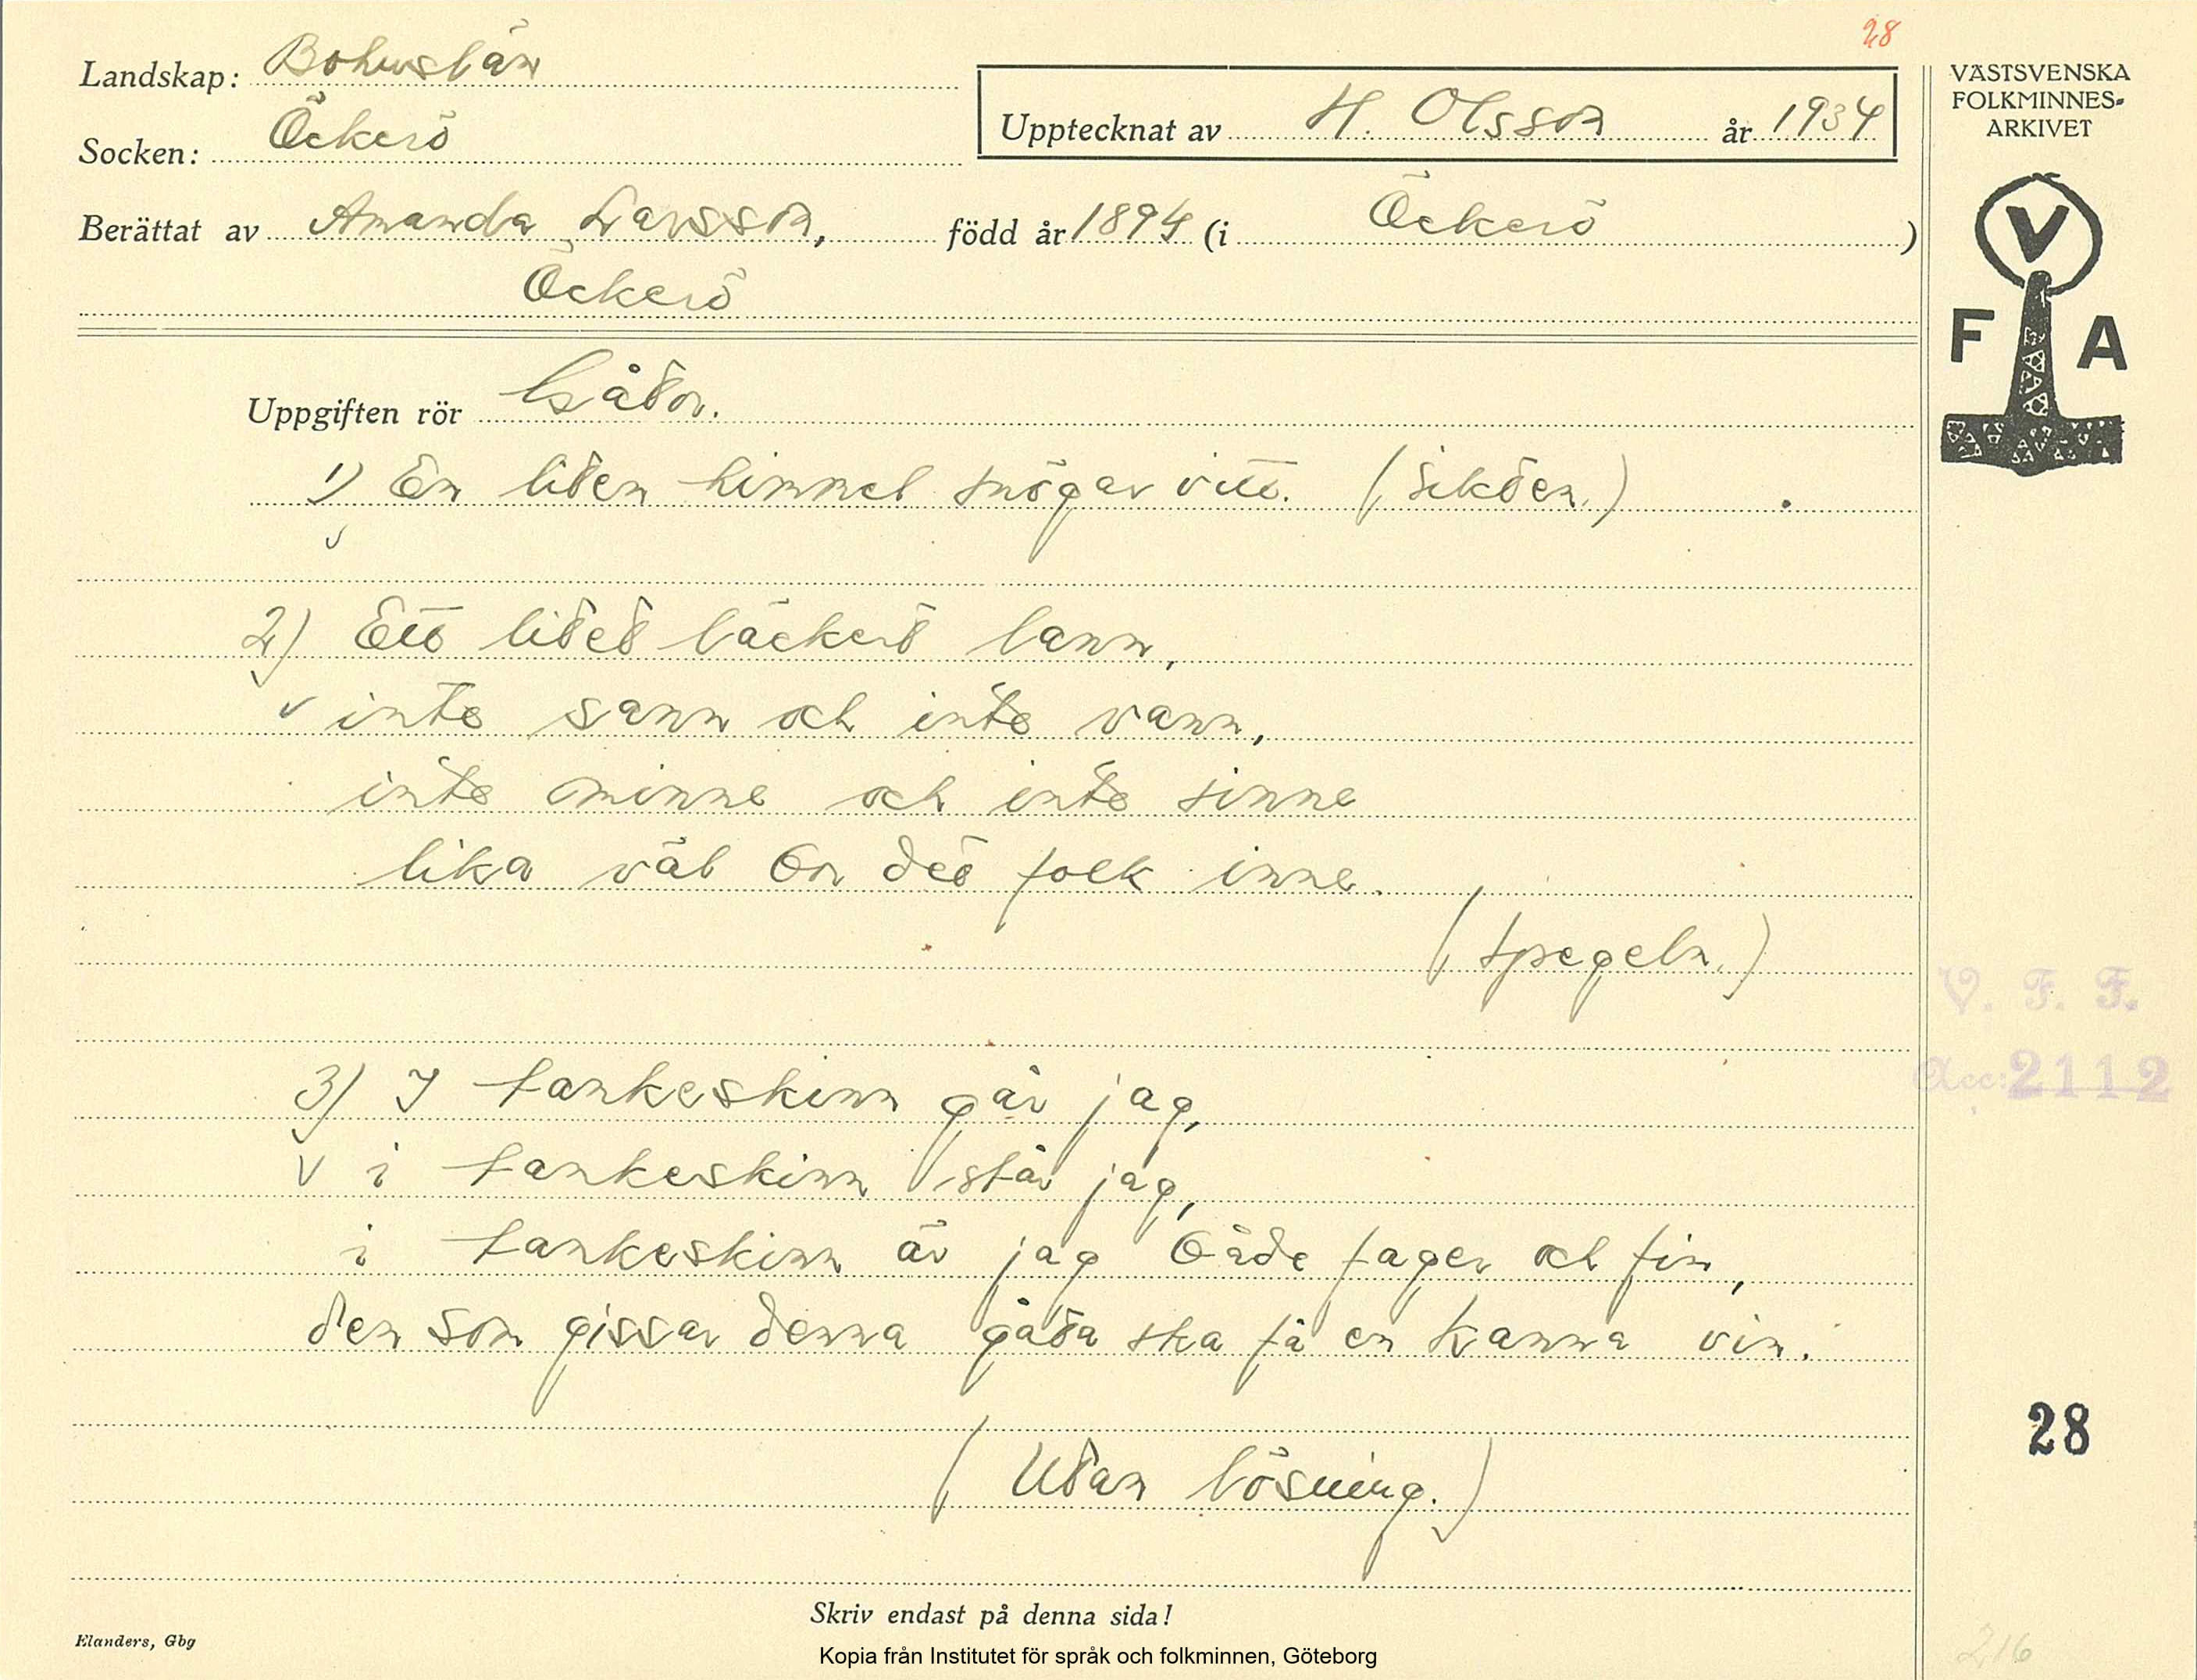 28
Landskap: Bohuslän
Socken: Öckerö
Upptecknat av H. Olsson år 1934
Berättat av Amanda Larsson, född år 1894 (i Öckerö)
Öckerö
VÄSTSVENSKA
FOLKMINNES-
ARKIVET
V
F A
Uppgiften rör Gåtor.
1) En liten himmel snögar vitt. (Sikten.)
2) Ett litet läckert lann,
inte sann och inte vann,
inte minne och inte sinne
lika väl bor det folk inne.
(Spegeln.)
V. F. F.
Acc: 2112
3) I tankeskinn går jag,
i tankeskinn står jag,
i tankeskinn är jag både fager och fin,
den som gissar denna gåta ska få en kanna vin.
(Utan lösning.)
28
Skriv endast på denna sida!
Elanders, Gbg
Kopia från Institutet för språk och folkminnen, Göteborg
216